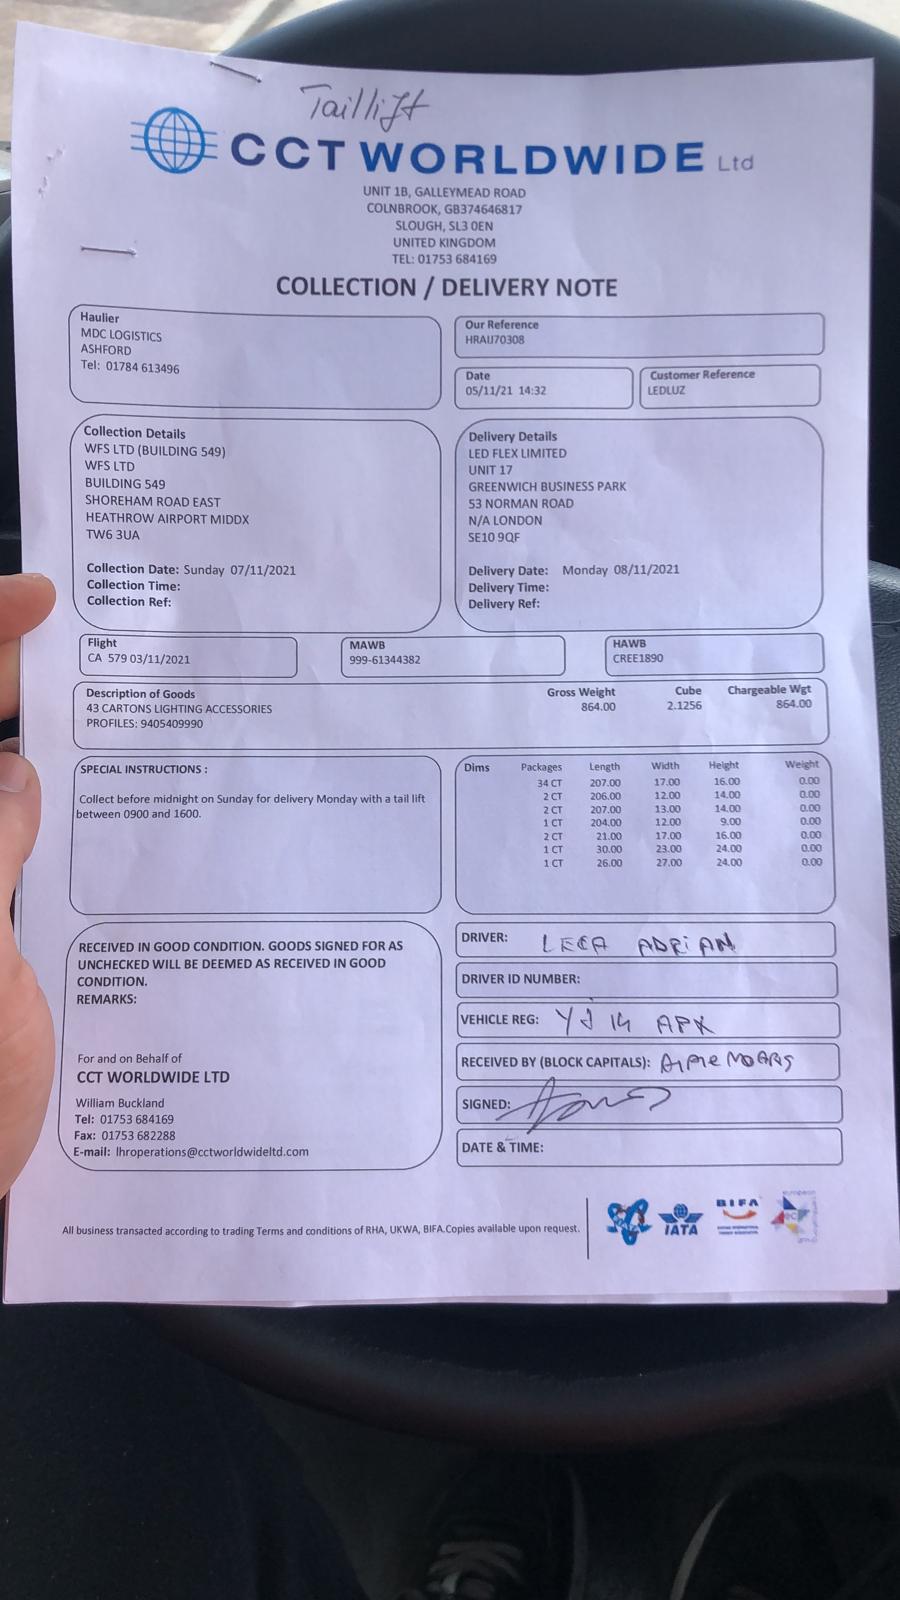 Taillift
CCT WORLDWIDE Ltd
UNIT 1B, GALLEYMEAD ROAD
COLNBROOK, GB374646817
SLOUGH, SL3 0EN
UNITED KINGDOM
TEL: 01753 684169
COLLECTION / DELIVERY NOTE
Haulier
MDC LOGISTICS
ASHFORD
Tel: 01784 613496
Our Reference
HRAIJ70308
Date
05/11/21 14:32
Customer Reference
LEDLUZ
Collection Details
WFS LTD (BUILDING 549)
WFS LTD
BUILDING 549
SHOREHAM ROAD EAST
HEATHROW AIRPORT MIDDX
TW6 3UA
Collection Date: Sunday 07/11/2021
Collection Time:
Collection Ref:
Delivery Details
LED FLEX LIMITED
UNIT 17
GREENWICH BUSINESS PARK
53 NORMAN ROAD
N/A LONDON
SE10 9QF
Delivery Date: Monday 08/11/2021
Delivery Time:
Delivery Ref:
Flight
CA 579 03/11/2021
MAWB
999-61344382
HAWB
CREE1890
Description of Goods Gross Weight Cube Chargeable Wgt
43 CARTONS LIGHTING ACCESSORIES 864.00 2.1256 864.00
PROFILES: 9405409990
SPECIAL INSTRUCTIONS :
Collect before midnight on Sunday for delivery Monday with a tail lift
between 0900 and 1600.
Dims Packages Length Width Height Weight
34 CT 207.00 17.00 16.00 0.00
2 CT 206.00 12.00 14.00 0.00
2 CT 207.00 13.00 14.00 0.00
1 CT 204.00 12.00 9.00 0.00
2 CT 21.00 17.00 16.00 0.00
1 CT 30.00 23.00 24.00 0.00
1 CT 26.00 27.00 24.00 0.00
RECEIVED IN GOOD CONDITION. GOODS SIGNED FOR AS
UNCHECKED WILL BE DEEMED AS RECEIVED IN GOOD
CONDITION.
REMARKS:
For and on Behalf of
CCT WORLDWIDE LTD
William Buckland
Tel: 01753 684169
Fax: 01753 682288
E-mail: lhroperations@cctworldwideltd.com
DRIVER: LECA ADRIAN
DRIVER ID NUMBER:
VEHICLE REG: YJ 14 APK
RECEIVED BY (BLOCK CAPITALS):
SIGNED:
DATE & TIME:
All business transacted according to trading Terms and conditions of RHA, UKWA, BIFA.Copies available upon request.
IATA
BIFA